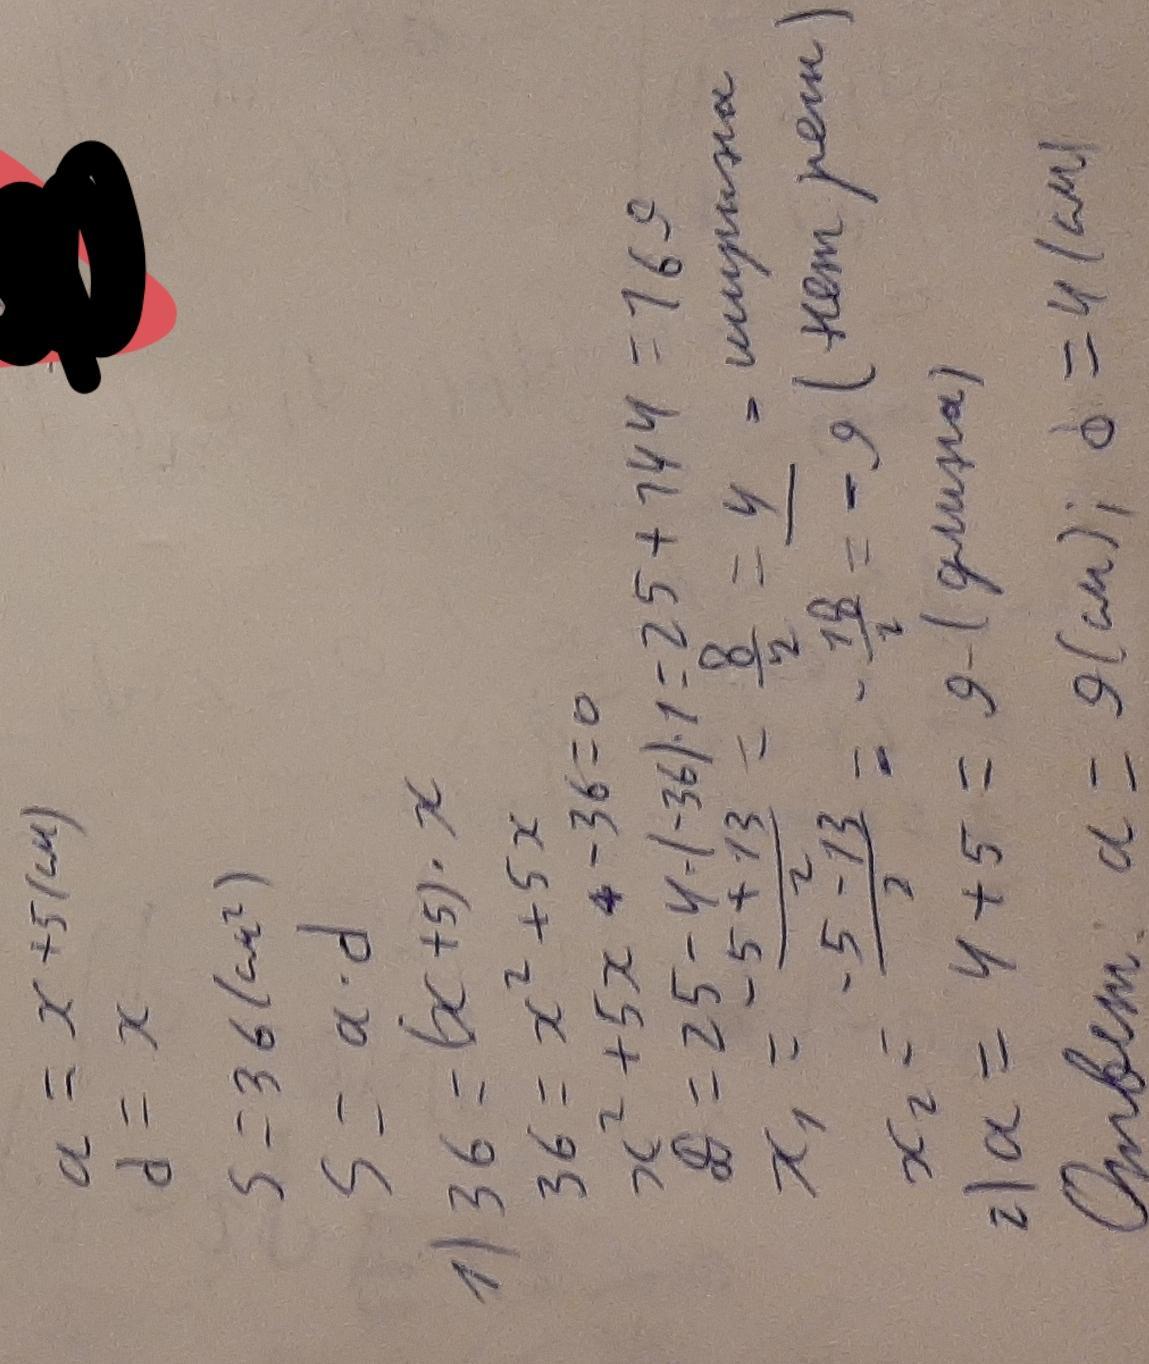 a = x + 5 (см)
d = x
S = 36 (см²)
S = a · d
1) 36 = (x + 5) · x
36 = x² + 5x
x² + 5x - 36 = 0
D = 25 - 4 · (-36) · 1 = 25 + 144 = 169
x₁ = (-5 + 13)/2 = 8/2 = 4 - ширина
x₂ = (-5 - 13)/2 = -18/2 = -9 (нет реш)
2) a = 4 + 5 = 9 - (длина)
Ответ. a = 9 (см); в = 4 (см)